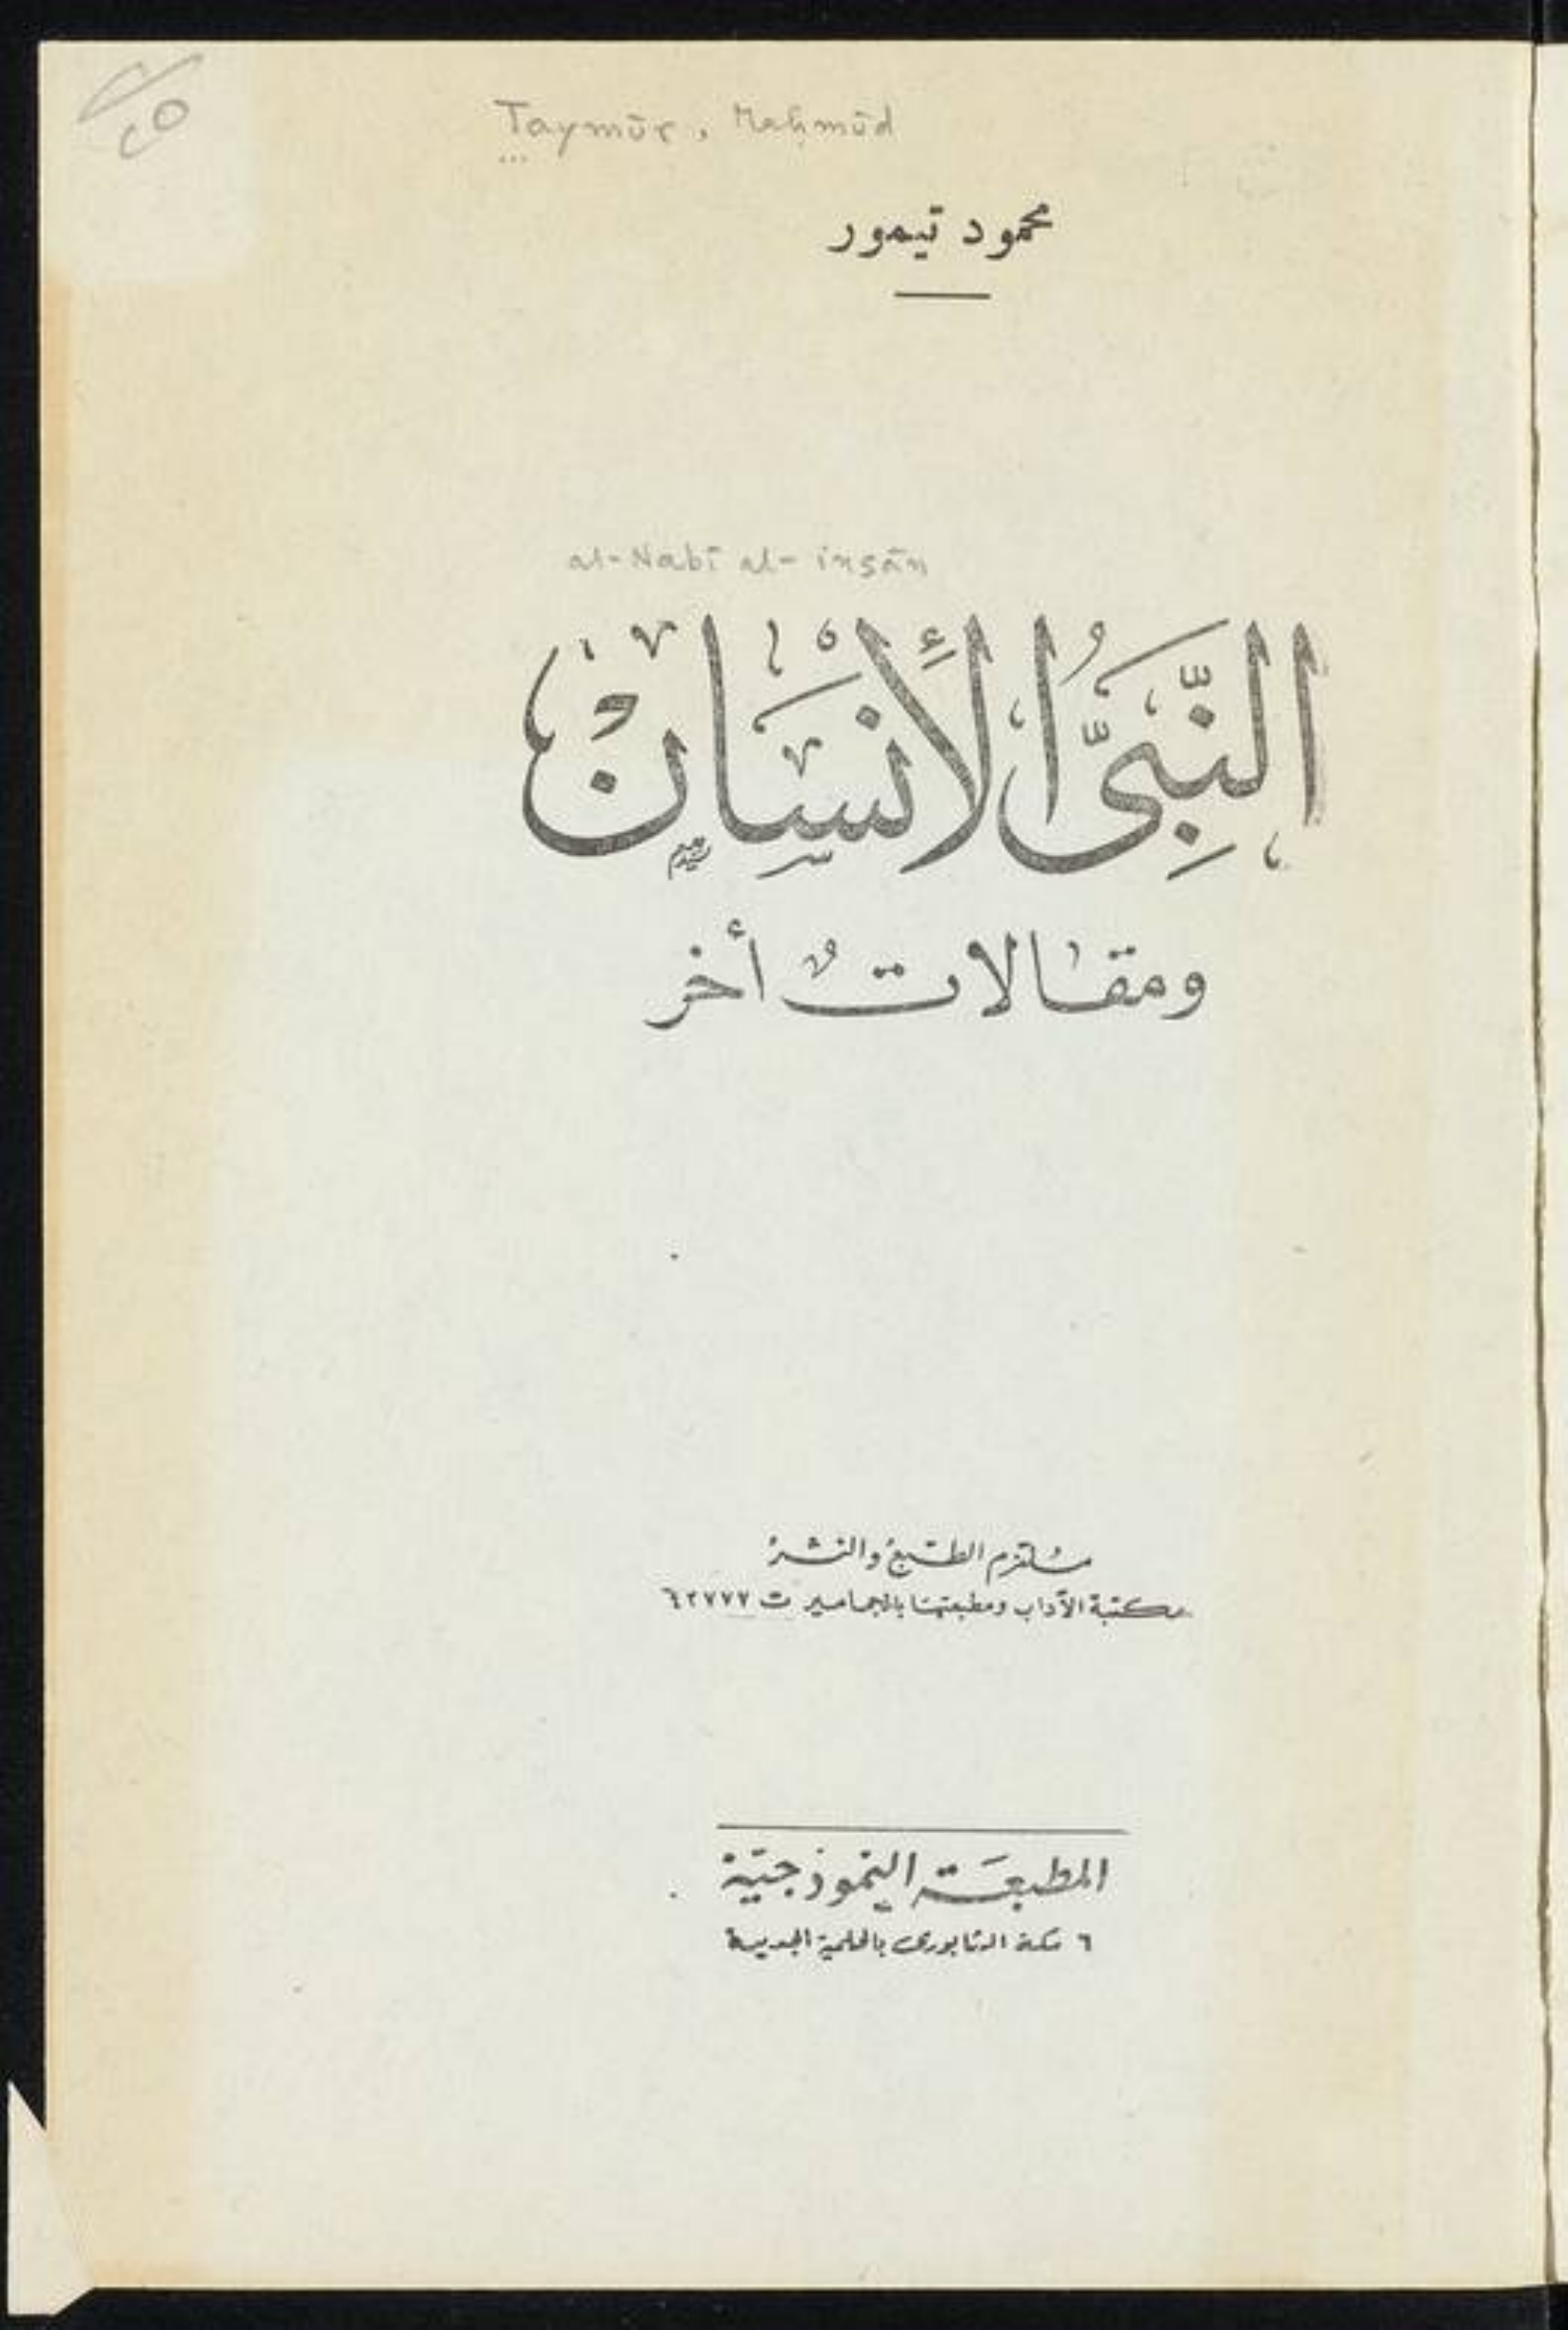 Taymūr, Maḥmūd
محمود تيمور
al-Nabī al-insān
النَّبِىُّ الإِنْسَانْ
ومقالاتٌ أخر
ملتزم الطبع والنشر
مكتبة الآداب ومطبعتها بالجماميز ت ٤٢٧٧٧
المطبعة النموذجية
٦ سكة الشابورى بالحلمية الجديدة